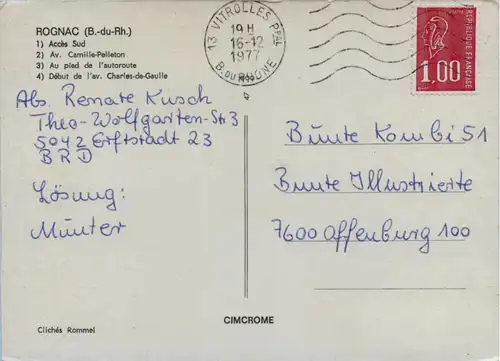 ROGNAC (B.-du-Rh.)
1) Accès Sud
2) Av. Camille-Pelletan
3) Au pied de l'autoroute
4) Début de l'av. Charles-de-Gaulle
13 VITROLLES PPAL
19 H
16-12
1977
B. DU RHONE
REPUBLIQUE FRANÇAISE
1,00
Abs. Renate Kusch
Theo-Wolfgarten-Str 3
5042 Erftstadt 23
BRD
Lösung:
Münter
Bunte Kombi 51
Bunte Illustrierte
7600 Offenburg 100
CIMCROME
Clichés Rommel